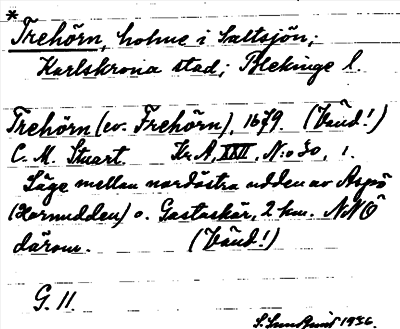 *
Trehörn, holme i Saltsjön;
Karlskrona stad; Blekinge l.
Trehörn (ev. Frehörn), 1679. (Vänd!)
C. M. Stuart. Kr. A, XXII, N:o 30, 1.
Läge mellan nordöstra udden av Aspö
(Hornudden) o. Gastaskär, 2 km. NNÖ
därom. (Vänd!)
G. 11.
S. Lundquist 1936.